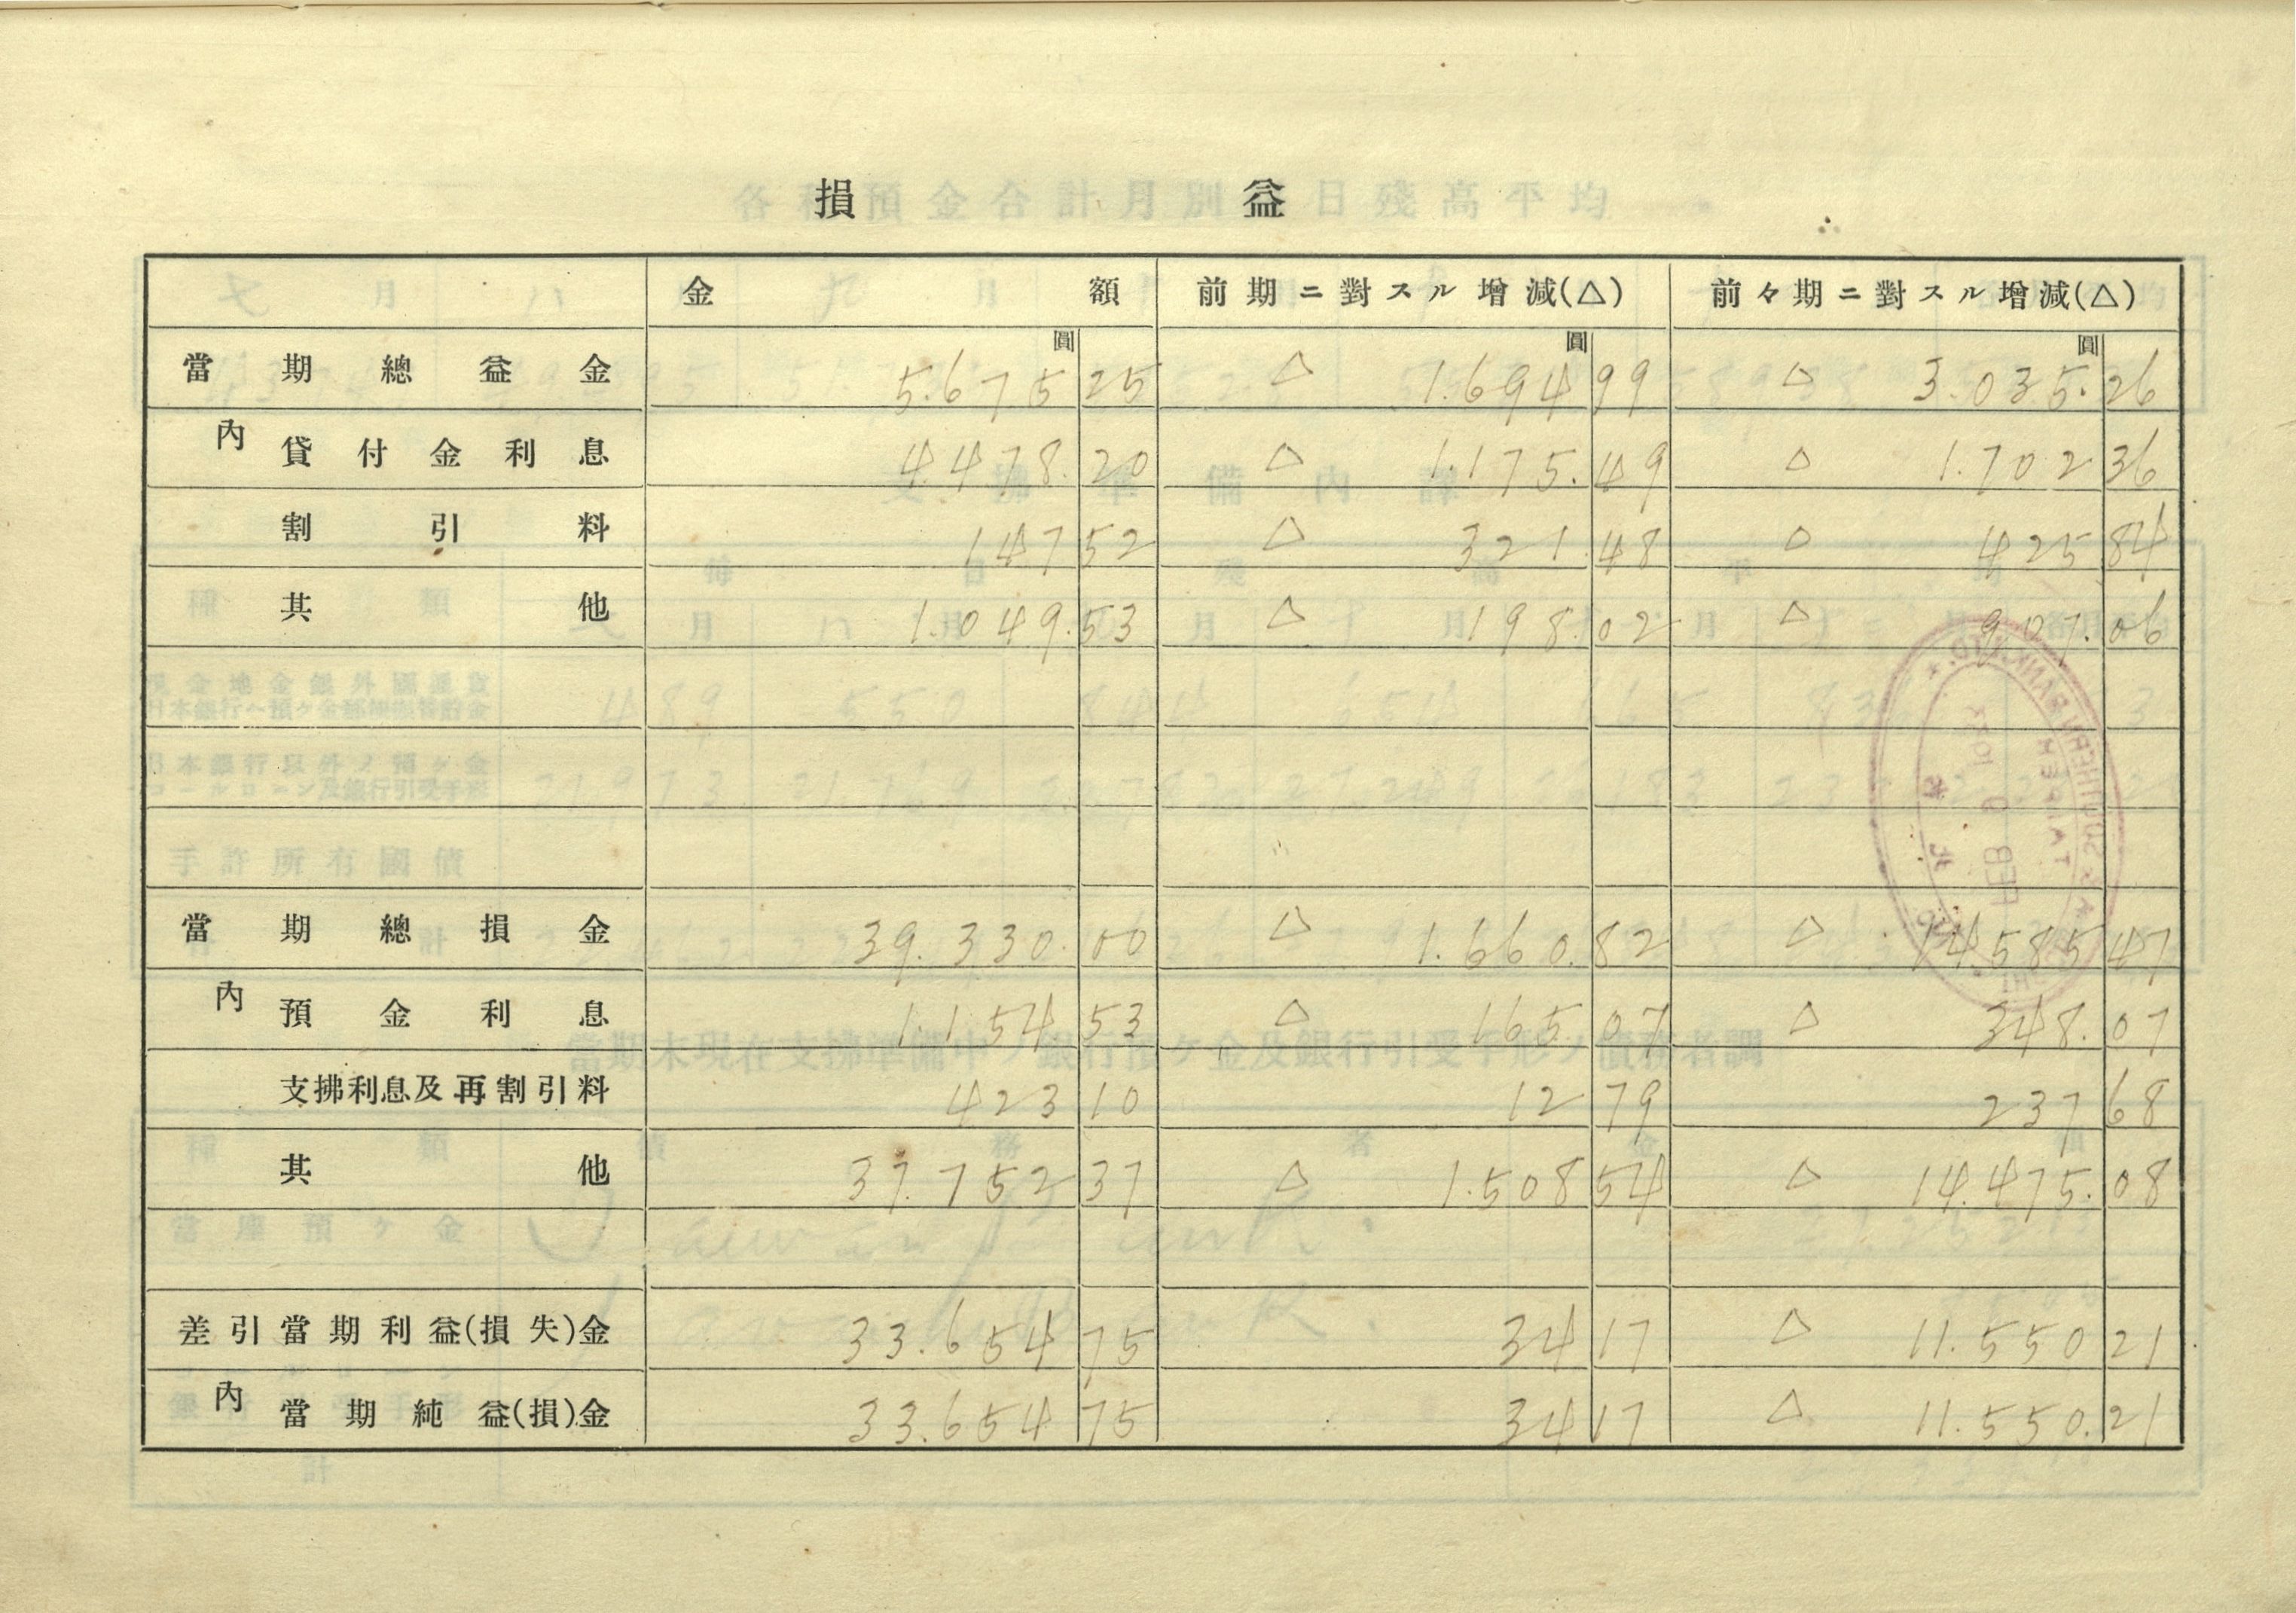 損 益
金 額 前期ニ對スル增減(△) 前々期ニ對スル增減(△)
圓 圓 圓
當期總益金 5.675 25 △ 1.694 99 △ 3.035. 26
內 貸付金利息 4.478. 20 △ 1.175. 49 △ 1.702 36
割引料 147 52 △ 321. 48 △ 425 84
其他 1.049. 53 △ 198. 02 △ 907. 06
當期總損金 39.330. 00 △ 1.660. 82 △ 14.585 47
內 預金利息 1.154 53 △ 165. 07 △ 348. 07
支拂利息及再割引料 423 10 12 79 237 68
其他 37.752 37 △ 1.508 54 △ 14.475. 08
差引當期利益(損失)金 33.654 75 34 17 △ 11.550 21
內 當期純益(損)金 33.654 75 34 17 △ 11.550. 21